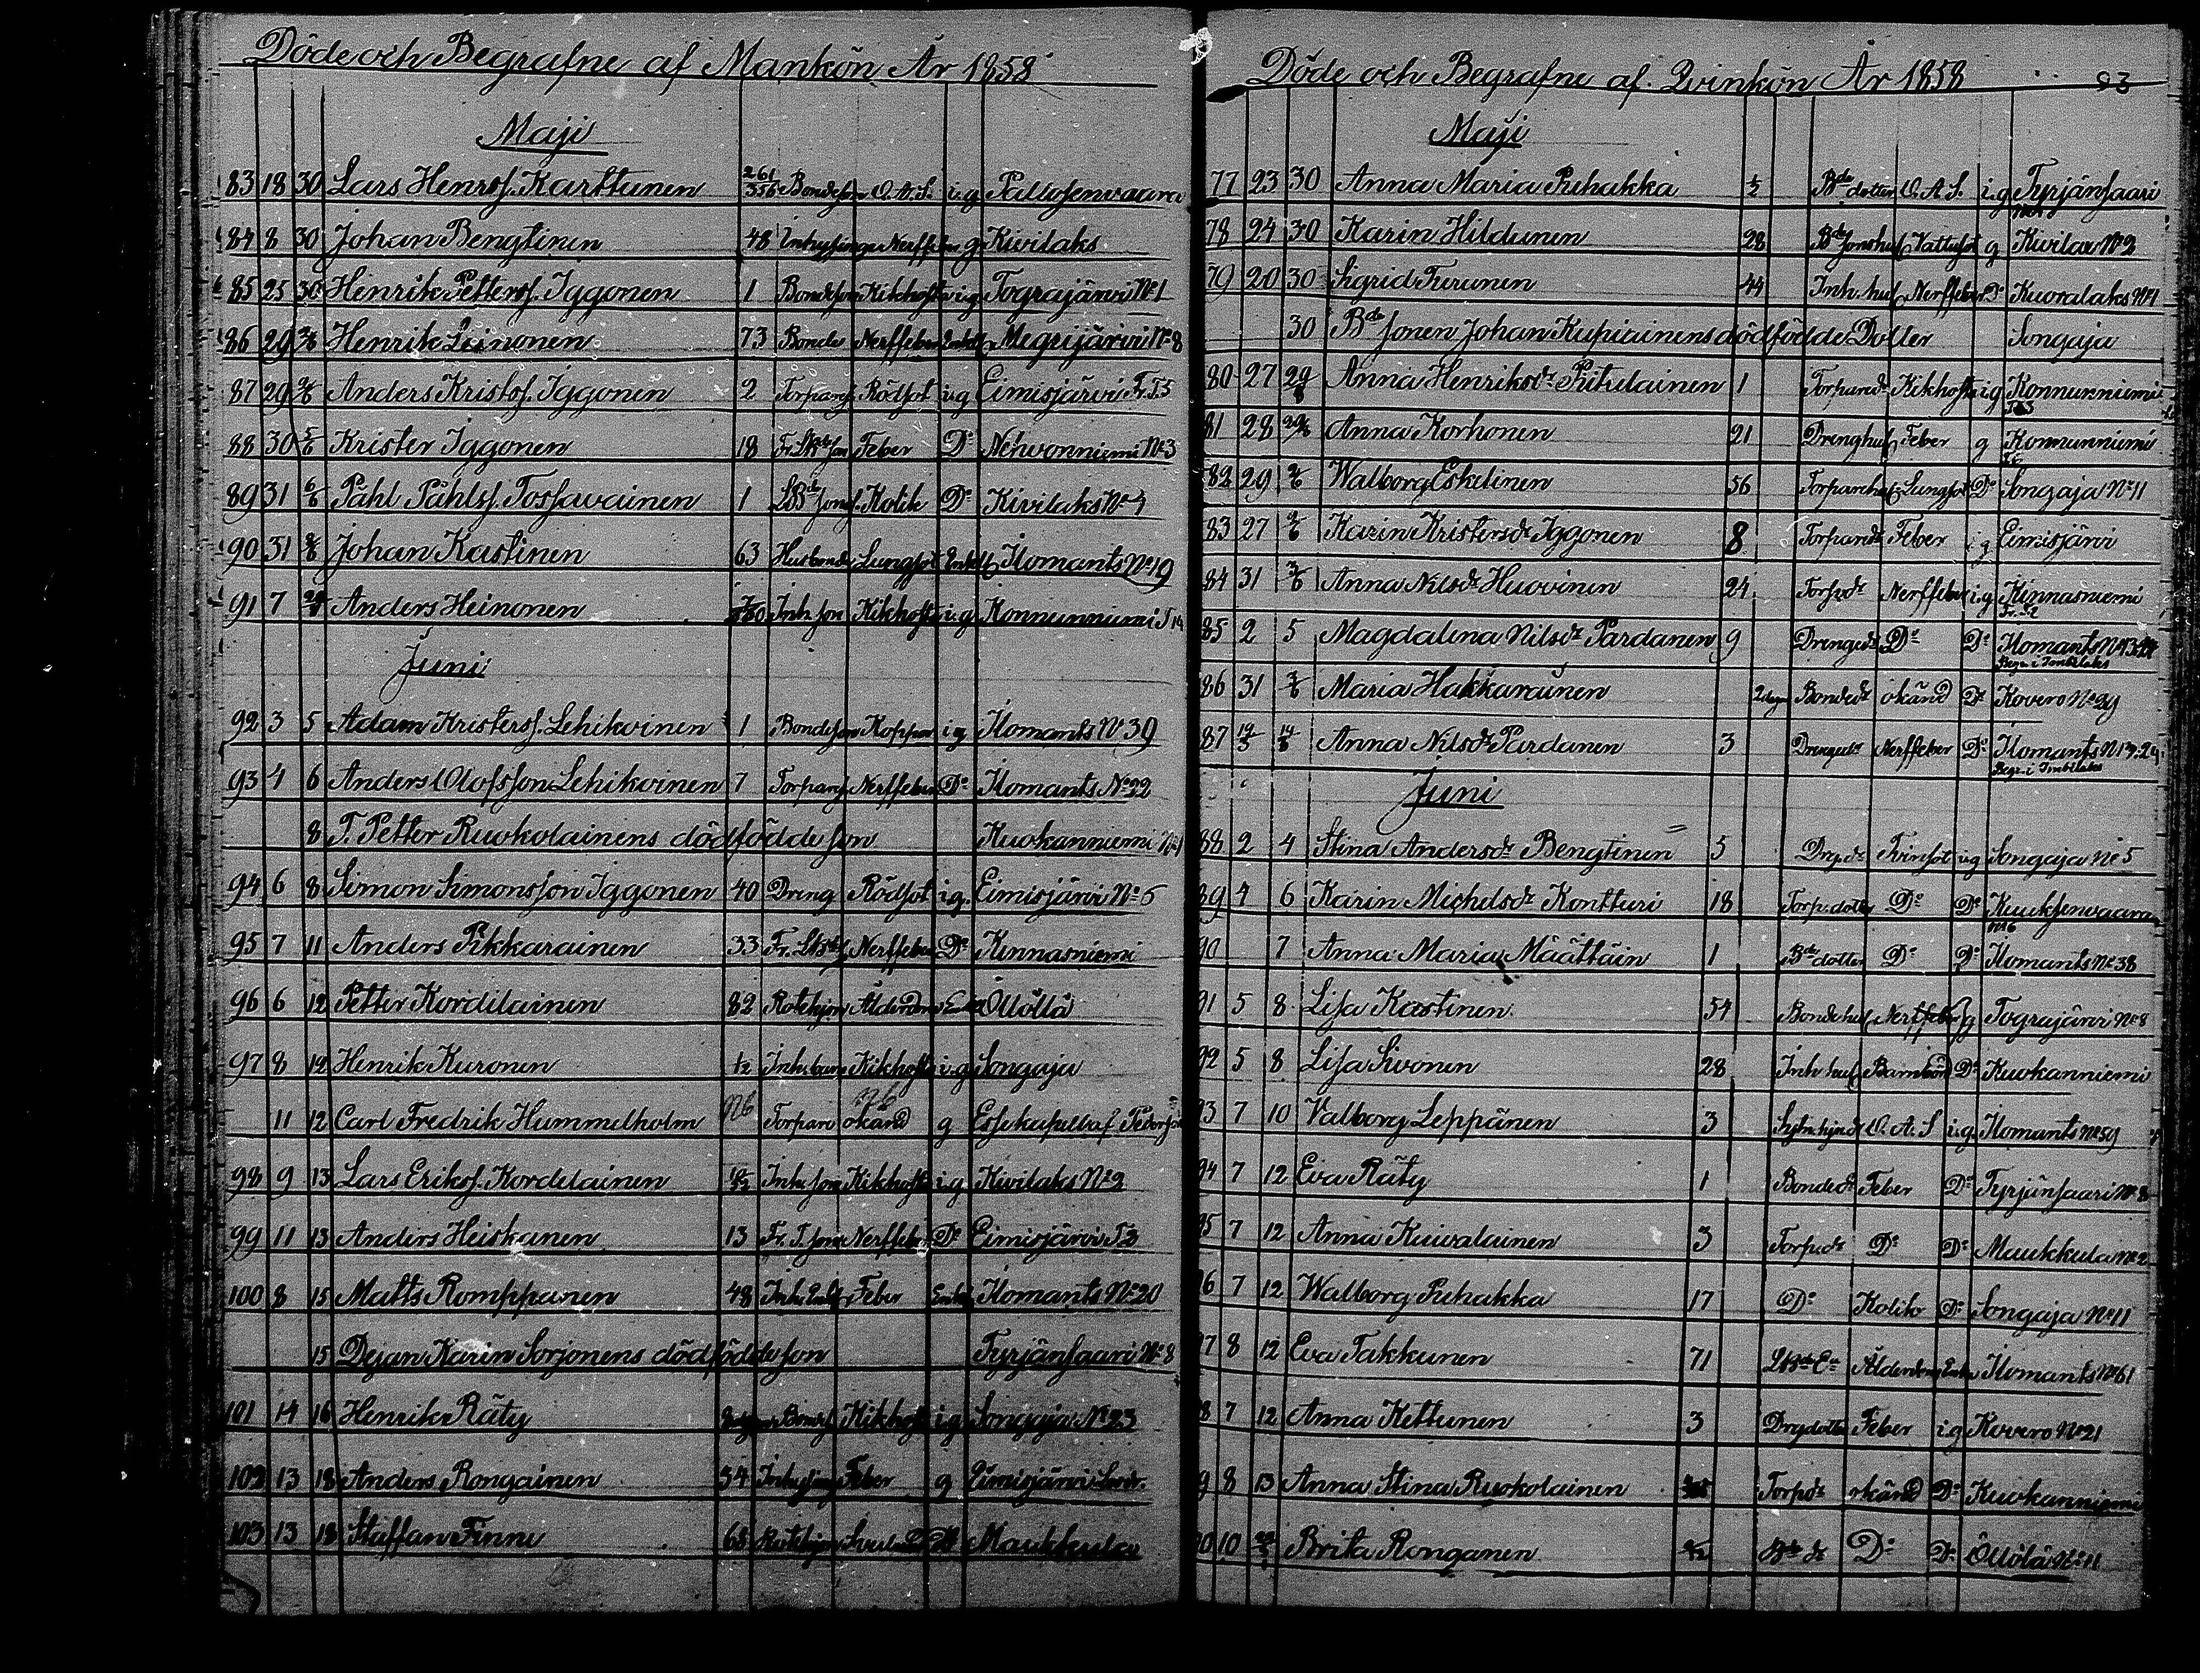 Döde och Begrafne af Mankön År 1858
Maji
83 18 30 Lars Henrsf. Karttunen 261/356 Bondeson O.A.S. i.g Pallosenvaara
84 8 30 Johan Bengtinen 48 Inhysinge Nerffeber g Kivilaks
85 25 30 Henrik Pettersf. Iggonen 1 Bondeson Kikhosta i.g Tograjärvi No 1
86 29 Henrik Leinonen 73 Bonde Nerffeber Enkl. Megrijärvi No 8
87 29 Anders Kristof. Iggonen 2 Torpares Rödsot i.g Eimisjärvi Fr.T.5
88 30 5/6 Krister Iggonen 18 Feber Do Nehvonniemi No 3
89 31 6/6 Påhl Påhlsf. Tossavainen 1 Kolik Do Kivilaks No 4
90 31 Johan Kastinen 63 Husbonde Lungsot Enkl. Ilomants No 19
91 7 Anders Heinonen Inh. son Kikhosta i.g Konnunniemi T 14
Juni
92 3 5 Adam Kristersf. Lehikoinen 1 Bondeson Koppor i.g Ilomants No 39
93 4 6 Anders Olofsson Lehikoinen 7 Torpars Nerffeber Do Ilomants No 22
8 T. Petter Ruokolainens dödfödde son Kuokanniemi No 1
94 6 8 Simon Simonsson Iggonen 40 Dreng Rödsot i.g. Eimisjärvi No 5
95 7 11 Anders Pikkarainen 33 Nerffeber Do Kinnasniemi
96 6 12 Petter Kordelainen 82 Rotehjon Ålderdom Enkl Öllölä
97 8 12 Henrik Kuronen Inh. barn Kikhosta i.g Songaja
11 12 Carl Fredrik Hummelholm Torpare okänd g Essekapell af
98 9 13 Lars Eriksf. Kordelainen Inh. son Kikhosta i.g Kivilaks No 2
99 11 13 Anders Heiskanen 13 Fr. T. son Nerffeber Do Eimisjärvi T 3
100 8 15 Matts Romppanen 48 Feber Enkl Ilomants No 20
15 Dejan Karin Sorjonens dödfödde son Tyrjänsaari No 8
101 14 16 Henrik Räty Kikhosta i.g Songaja No 23
102 13 18 Anders Rongainen 54 Inhysinge Feber g Eimisjärvi
103 13 18 Staffan Finne 65 Rotehjon Maukkula
Döde och Begrafne af Qvinkön År 1858 93
Maji
77 23 30 Anna Maria Puhakka 1/2 Bde dotter O.A.S. i.g Tyrjänsaari
78 24 30 Karin Hildunen 28 Bde sonshuf Vattusot g Kivilax No 2
79 20 30 Sigrid Turunen 44 Inh. huf Nerffeber Do Kuoralaks No 1
30 Bde sonen Johan Kupiainens dödfödde Dotter Songaja
80 27 Anna Henriksdr Piitulainen 1 Torpared. Kikhosta i.g Konnunniemi
81 28 Anna Korhonen 21 Drenghuf Feber g Konnunniemi
82 29 Walborg Eskelinen 56 Torparehuf Lungsot Do Songaja No 11
83 27 Karin Kristersdr Iggonen 8 Torpardr Feber i.g Eimisjärvi
84 31 3/6 Anna Nilsdr Huovinen 24 Torpdr Nerffeber i.g Kinnasniemi
85 2 5 Magdalena Nilsdr Pardanen 9 Drengedr Do Do Ilomants
Begr. i Tombilaks
86 31 3/6 Maria Hakkarainen 2 dagar Bondedr okänd Do Kovero No 29
87 Anna Nilsdr Pardanen 3 Drengedr Nerffeber Do Ilomants
Begr. i Tombilaks
Juni
88 2 4 Stina Andersdr Bengtinen 5 Drgdr Tvinsot i.g Songaja No 5
89 4 6 Karin Michelsdr Kontturi 18 Torp. dotter Do Do Kuuksenvaara
No 6
90 7 Anna Maria Määttäin 1 Bde dotter Do Do Ilomants No 38
91 5 8 Lisa Kastinen 54 Bondehuf Nerffeber g Tograjärvi No 8
92 5 8 Lisa Sivonen 28 Inh. huf Barnbörd Do Kuokanniemi
93 7 10 Valborg Leppänen 3 O.A.S i.g. Ilomants No 59
94 7 12 Eva Räty 1 Bondedr Feber Do Tyrjänsaari No 8
95 7 12 Anna Kuivalainen 3 Torpdr Do Do Maukkula No 2
96 7 12 Walborg Puhakka 17 Do Kolik Do Songaja No 11
97 8 12 Eva Takkunen 71 Ålderdom Enka Ilomants No 61
98 7 12 Anna Kettunen 3 Drgdotter Feber i.g Kovero No 21
99 8 13 Anna Stina Ruokolainen Torpdr okänd Do Kuokanniemi
100 10 Brita Ronganen Do Do Öllölä No 11